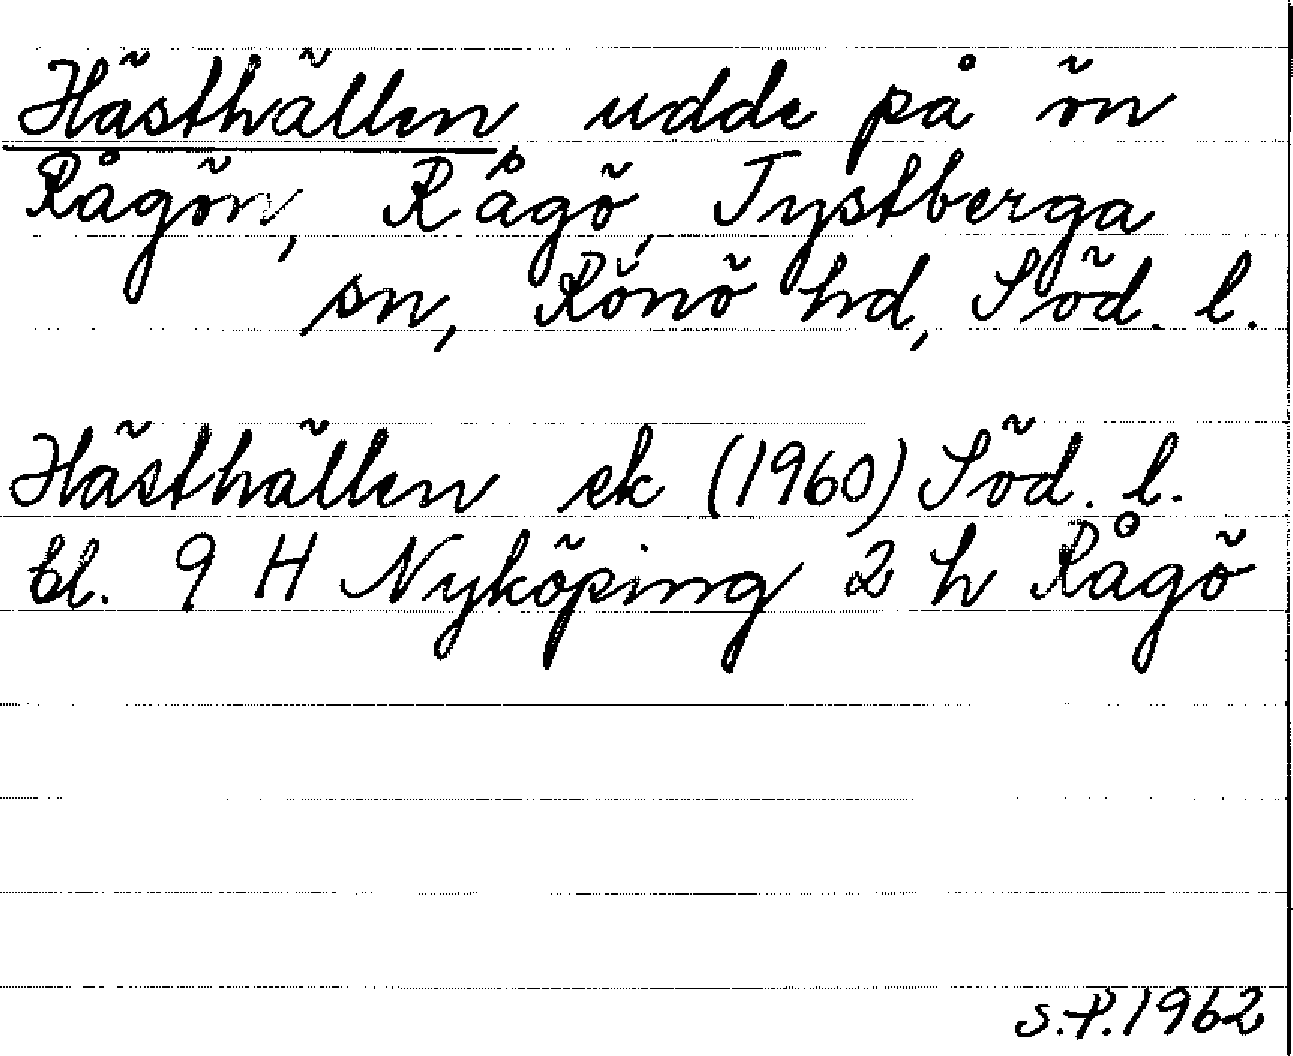 Hästhällen, udde på ön
Rågön, Rågö, Tystberga
sn, Rönö hd, Söd. l.
Hästhällen ek (1960) Söd. l.
bl. 9 H Nyköping 2 h Rågö
S.P. 1962